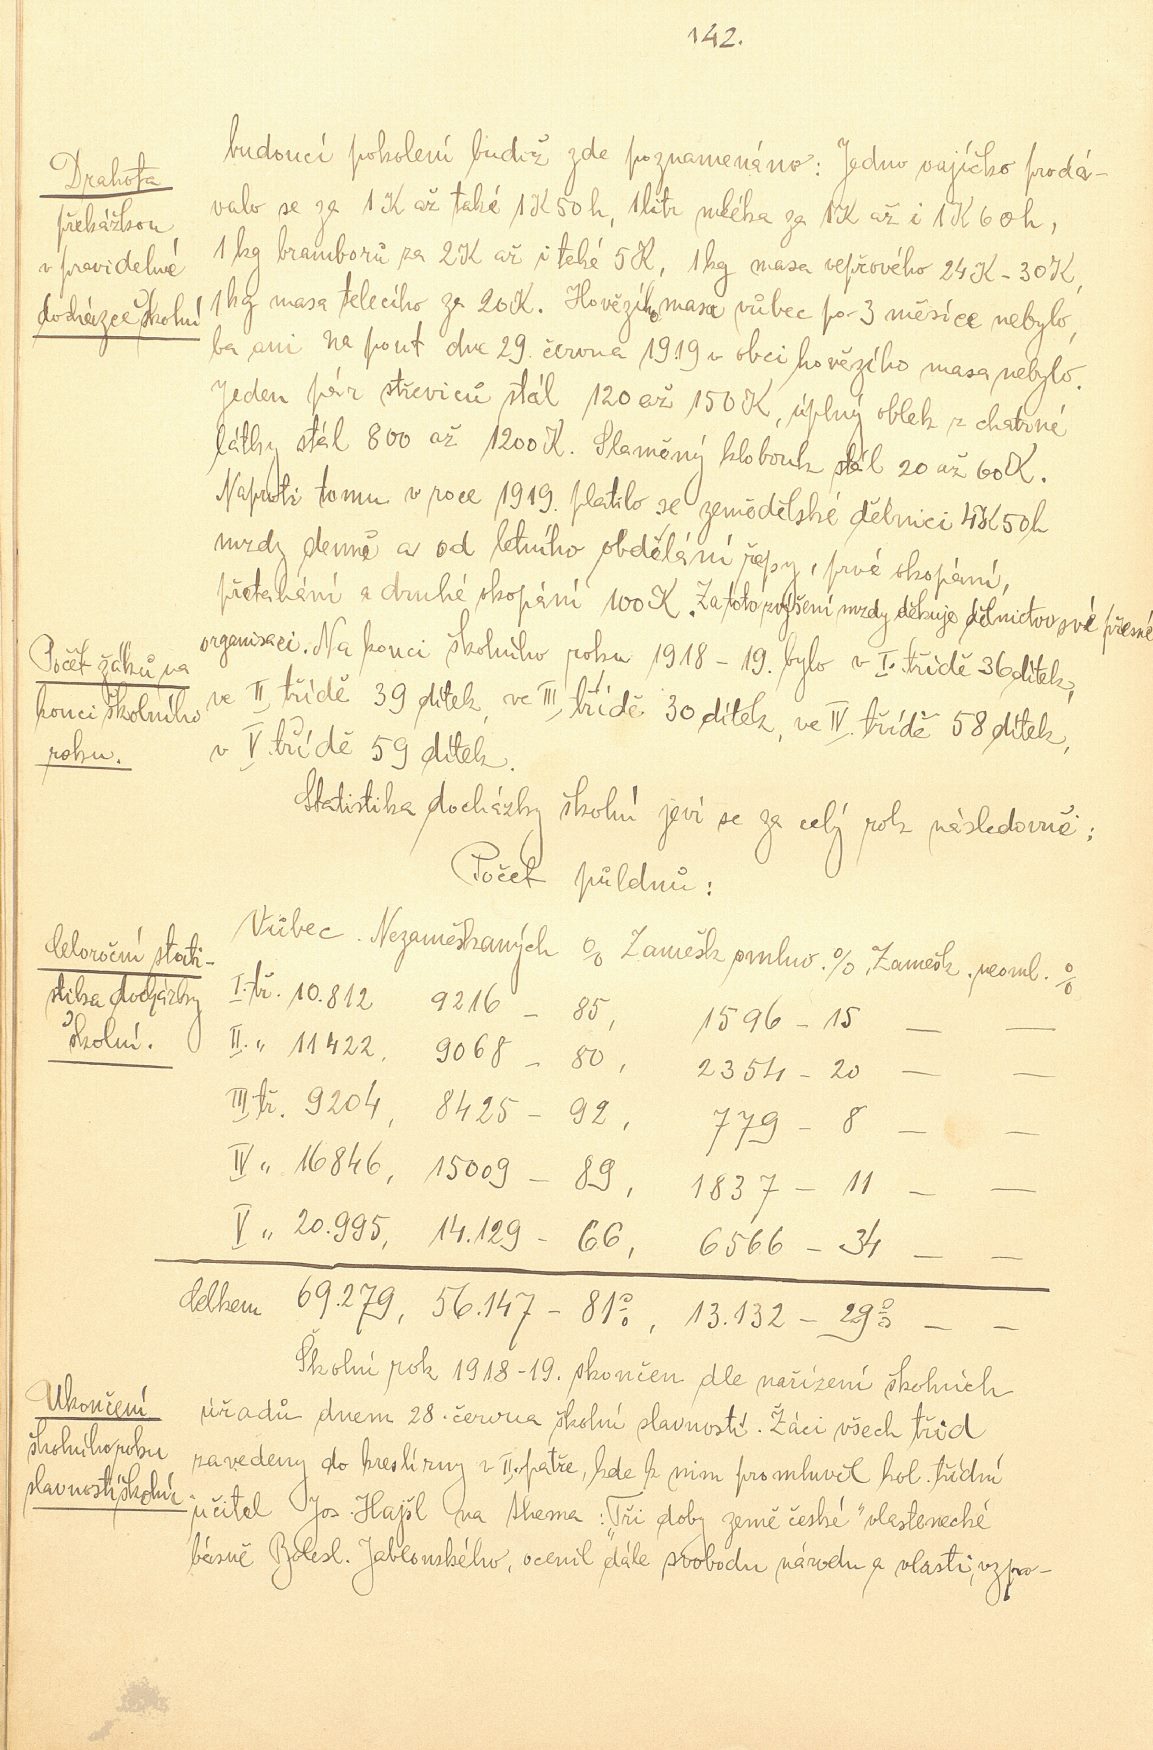 142.
Drahota
překážkou
v pravidelné
docházce školní
budoucí pokolení budiž zde poznamenáno: Jedno vajíčko prodá-
valo se za 1 K až také 1 K 50 h, 1 litr mléka za 1 K až i 1 K 60 h,
1 kg bramborů za 2 K až i také 5 K, 1 kg masa vepřového 24 K - 30 K,
1 kg masa telecího za 20 K. Hovězího masa vůbec po 3 měsíce nebylo,
ba ani na pouť dne 29. června 1919 v obci hovězího masa nebylo.
Jeden pár střevíců stál 120 až 150 K, úplný oblek z chatrné
látky stál 800 až 1200 K. Slaměný klobouk stál 20 až 60 K.
Naproti tomu v roce 1919. platilo se zemědělské dělnici 4 K 50 h
mzdy denně a od letního obdělání řepy, prvé okopání,
přetahání a druhé okopání 100 K. Za toto zvýšení mzdy děkuje dělnictvo své přesné
organisaci. Na konci školního roku 1918 - 19. bylo v I. třídě 36 dítek,
ve II třídě 39 dítek, ve III. třídě 30 dítek, ve IV. třídě 58 dítek,
v V. třídě 59 dítek.
Počet žáků na
konci školního
roku.
Statistika docházky školní jeví se za celý rok následovně:
Počet půldnů:
Celoroční stati-
stika docházky
školní.
Vůbec. Nezameškaných % Zamešk omluv. %, Zamešk. neoml. %
I. tř. 10.812 9216 - 85, 1596 - 15 — —
II. „ 11422, 9068 - 80, 2354 - 20 — —
III tř. 9204, 8425 - 92, 779 - 8 — —
IV „ 16846, 15009 - 89, 1837 - 11 — —
V „ 20.995, 14.129 - 66, 6566 - 34 — —
Celkem 69.279, 56.147 - 81%, 13.132 - 29% — —
Ukončení
školního roku
slavností školní
Školní rok 1918-19. skončen dle nařízení školních
úřadů dnem 28. června školní slavností. Žáci všech tříd
zavedeny do kreslírny v II. patře, kde k nim promluvil kol. třídní
učitel Jos. Hajšl na thema: „Tři doby země české" vlastenecké
básně Bolesl. Jablonského, ocenil dále svobodu národu a vlasti, vzpo-